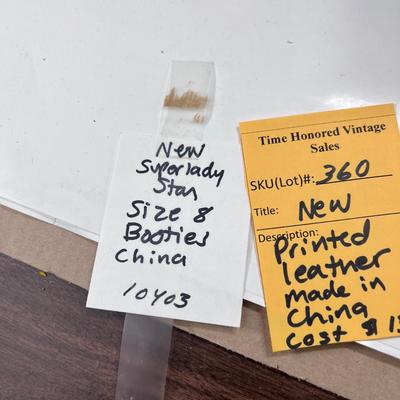 New
Superlady
Star
Size 8
Booties
China
10403
Time Honored Vintage
Sales
SKU(Lot)#: 360
Title: New
Description:
Printed
leather
made in
China
Cost $ 13